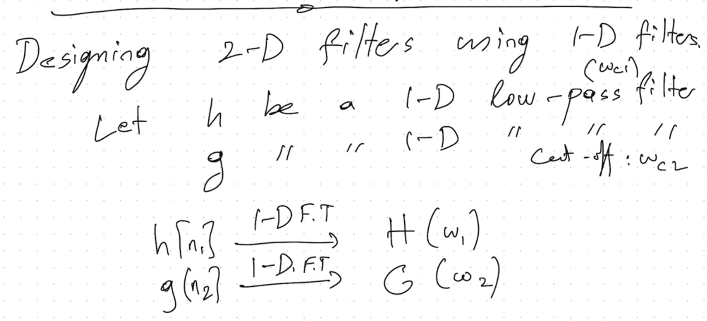 Designing 2-D filters using 1-D filters.
(ωc1)
Let h be a 1-D low-pass filter
g " " 1-D " " "
Cut-off : ωc2
h[n1] 1-D F.T → H(ω1)
g[n2] 1-D. F.T → G(ω2)